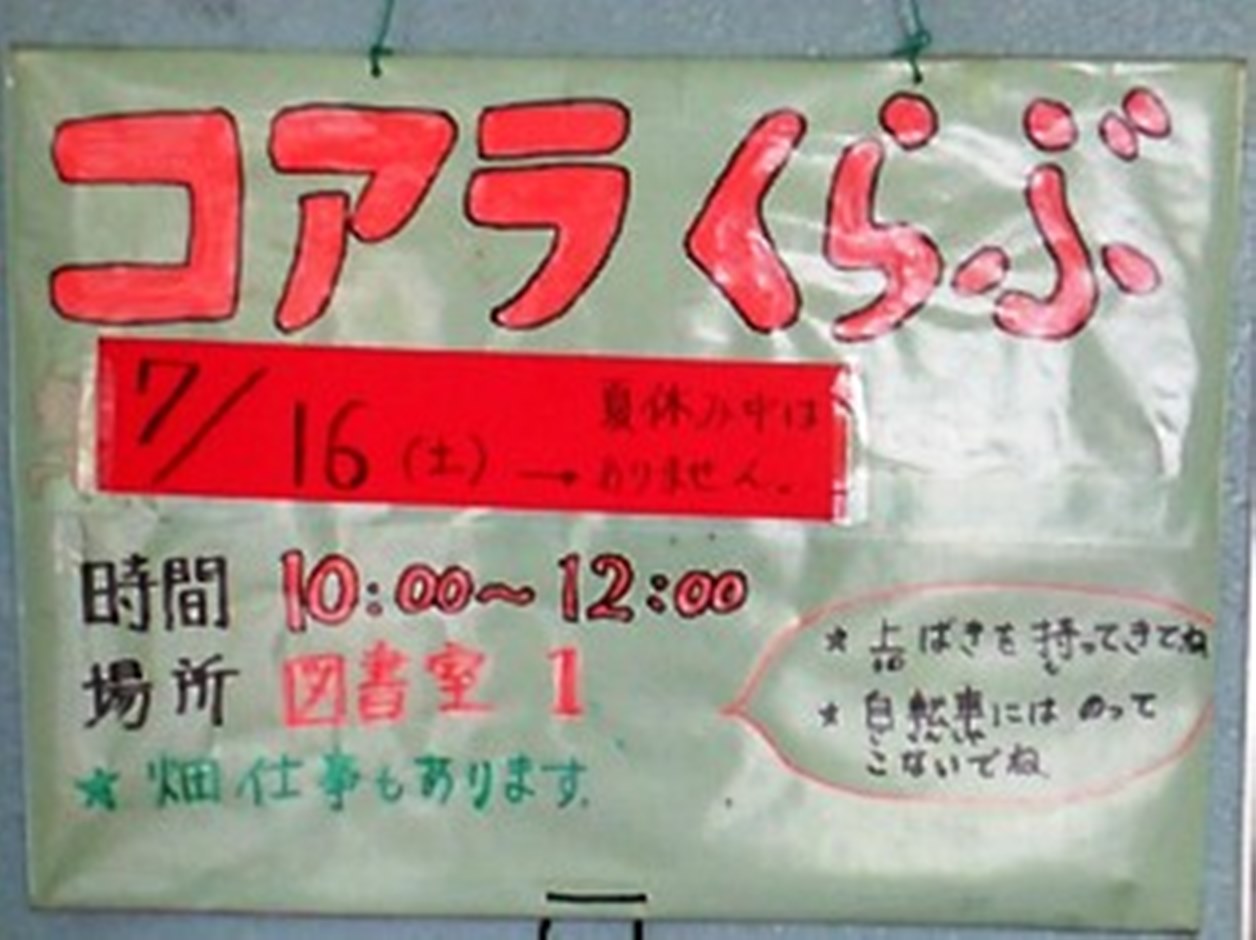 コアラくらぶ
7/16(土)→夏休み中は
ありません。
時間 10:00〜12:00
場所 図書室 1
★畑仕事もあります
★上ばきを持ってきてね
★自転車にはのって
こないでね